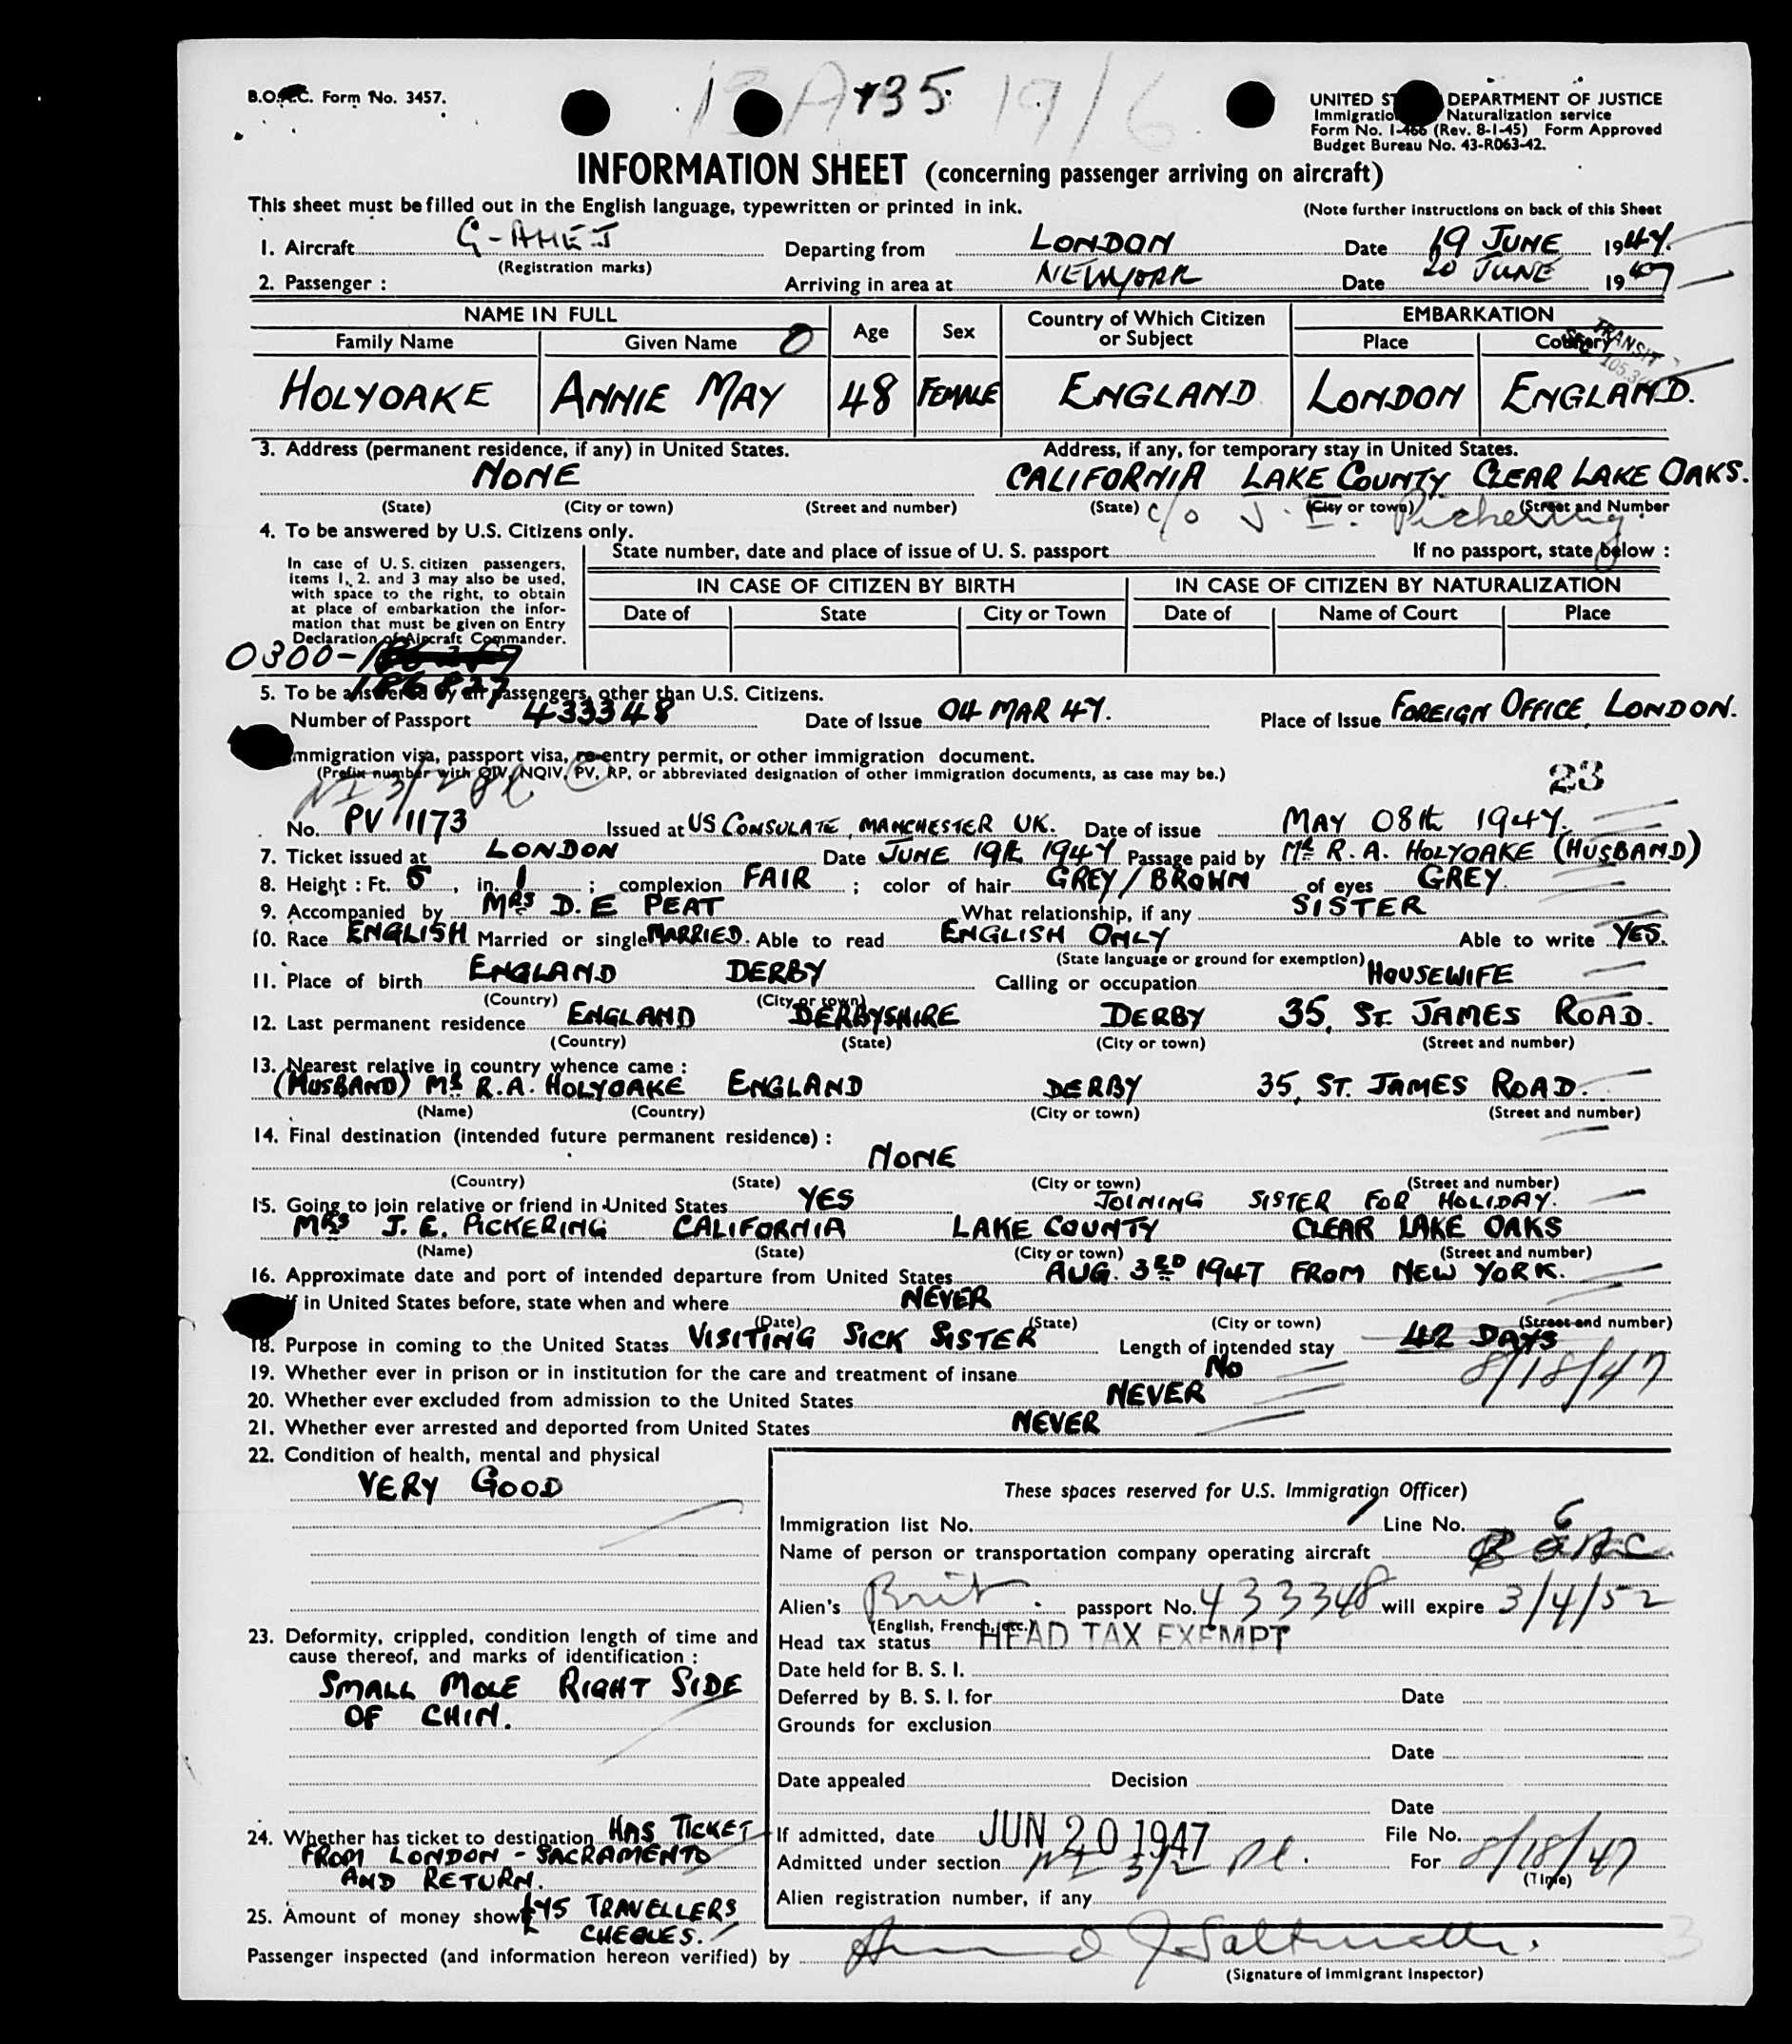 13A 435 19/6
B.O.A.C. Form No. 3457.
UNITED ST DEPARTMENT OF JUSTICE
Immigratio Naturalization service
Form No. I-466 (Rev. 8-1-45) Form Approved
Budget Bureau No. 43-R063-42.
INFORMATION SHEET (concerning passenger arriving on aircraft)
This sheet must be filled out in the English language, typewritten or printed in ink.
(Note further instructions on back of this Sheet
1. Aircraft G-AHEJ Departing from LONDON Date 19 JUNE 1947.
(Registration marks)
2. Passenger : Arriving in area at NEWYORK Date 20 JUNE 1947
NAME IN FULL Age Sex Country of Which Citizen or Subject EMBARKATION
Family Name Given Name Place Country
TRANSIT
HOLYOAKE ANNIE MAY 48 FEMALE ENGLAND LONDON ENGLAND.
3. Address (permanent residence, if any) in United States. Address, if any, for temporary stay in United States.
NONE CALIFORNIA LAKE COUNTY CLEAR LAKE OAKS.
(State) (City or town) (Street and number) (State) (City or town) (Street and Number
c/o J. E. Pickering.
4. To be answered by U.S. Citizens only.
State number, date and place of issue of U. S. passport If no passport, state below :
In case of U. S. citizen passengers,
items 1, 2. and 3 may also be used,
with space to the right, to obtain
at place of embarkation the infor-
mation that must be given on Entry
Declaration of Aircraft Commander.
IN CASE OF CITIZEN BY BIRTH IN CASE OF CITIZEN BY NATURALIZATION
Date of State City or Town Date of Name of Court Place
0300-
186827
5. To be answered by all passengers, other than U.S. Citizens.
Number of Passport 433348 Date of Issue 04 MAR 47. Place of Issue FOREIGN OFFICE, LONDON.
mmigration visa, passport visa, re-entry permit, or other immigration document.
(Prefix number with QIV, NQIV, PV, RP, or abbreviated designation of other immigration documents, as case may be.)
23
No. PV 1173 Issued at US CONSULATE, MANCHESTER UK. Date of issue MAY 08th 1947.
7. Ticket issued at LONDON Date JUNE 19th 1947 Passage paid by Mr R. A. HOLYOAKE (HUSBAND)
8. Height : Ft. 5, in. 1 ; complexion FAIR ; color of hair GREY/BROWN of eyes GREY.
9. Accompanied by MRS D. E PEAT What relationship, if any SISTER
10. Race ENGLISH Married or single MARRIED. Able to read ENGLISH ONLY Able to write YES.
(State language or ground for exemption)
11. Place of birth ENGLAND DERBY Calling or occupation HOUSEWIFE
(Country) (City or town)
12. Last permanent residence ENGLAND DERBYSHIRE DERBY 35, ST. JAMES ROAD.
(Country) (State) (City or town) (Street and number)
13. Nearest relative in country whence came :
(HUSBAND) Mr R.A. HOLYOAKE ENGLAND DERBY 35, ST. JAMES ROAD.
(Name) (Country) (City or town) (Street and number)
14. Final destination (intended future permanent residence) :
NONE
(Country) (State) (City or town) (Street and number)
15. Going to join relative or friend in United States YES JOINING SISTER FOR HOLIDAY.
MRS J. E. PICKERING CALIFORNIA LAKE COUNTY CLEAR LAKE OAKS
(Name) (State) (City or town) (Street and number)
16. Approximate date and port of intended departure from United States AUG. 3RD 1947 FROM NEW YORK.
If in United States before, state when and where NEVER
(Date) (State) (City or town) (Street and number)
18. Purpose in coming to the United States VISITING SICK SISTER Length of intended stay 42 DAYS
8/18/47
19. Whether ever in prison or in institution for the care and treatment of insane No
20. Whether ever excluded from admission to the United States NEVER
21. Whether ever arrested and deported from United States NEVER
22. Condition of health, mental and physical
VERY GOOD
23. Deformity, crippled, condition length of time and
cause thereof, and marks of identification :
SMALL MOLE RIGHT SIDE
OF CHIN.
24. Whether has ticket to destination HAS TICKET
FROM LONDON - SACRAMENTO
AND RETURN.
25. Amount of money shown £45 TRAVELLERS
CHEQUES.
These spaces reserved for U.S. Immigration Officer)
Immigration list No. Line No. 6
Name of person or transportation company operating aircraft BOAC
Alien's Brit. passport No. 433348 will expire 3/4/52
(English, French, etc.)
Head tax status HEAD TAX EXEMPT
Date held for B. S. I.
Deferred by B. S. I. for Date
Grounds for exclusion
Date
Date appealed Decision
Date
If admitted, date JUN 20 1947 File No.
Admitted under section 3/2 For 8/18/47
(Time)
Alien registration number, if any
Passenger inspected (and information hereon verified) by
(Signature of Immigrant Inspector)